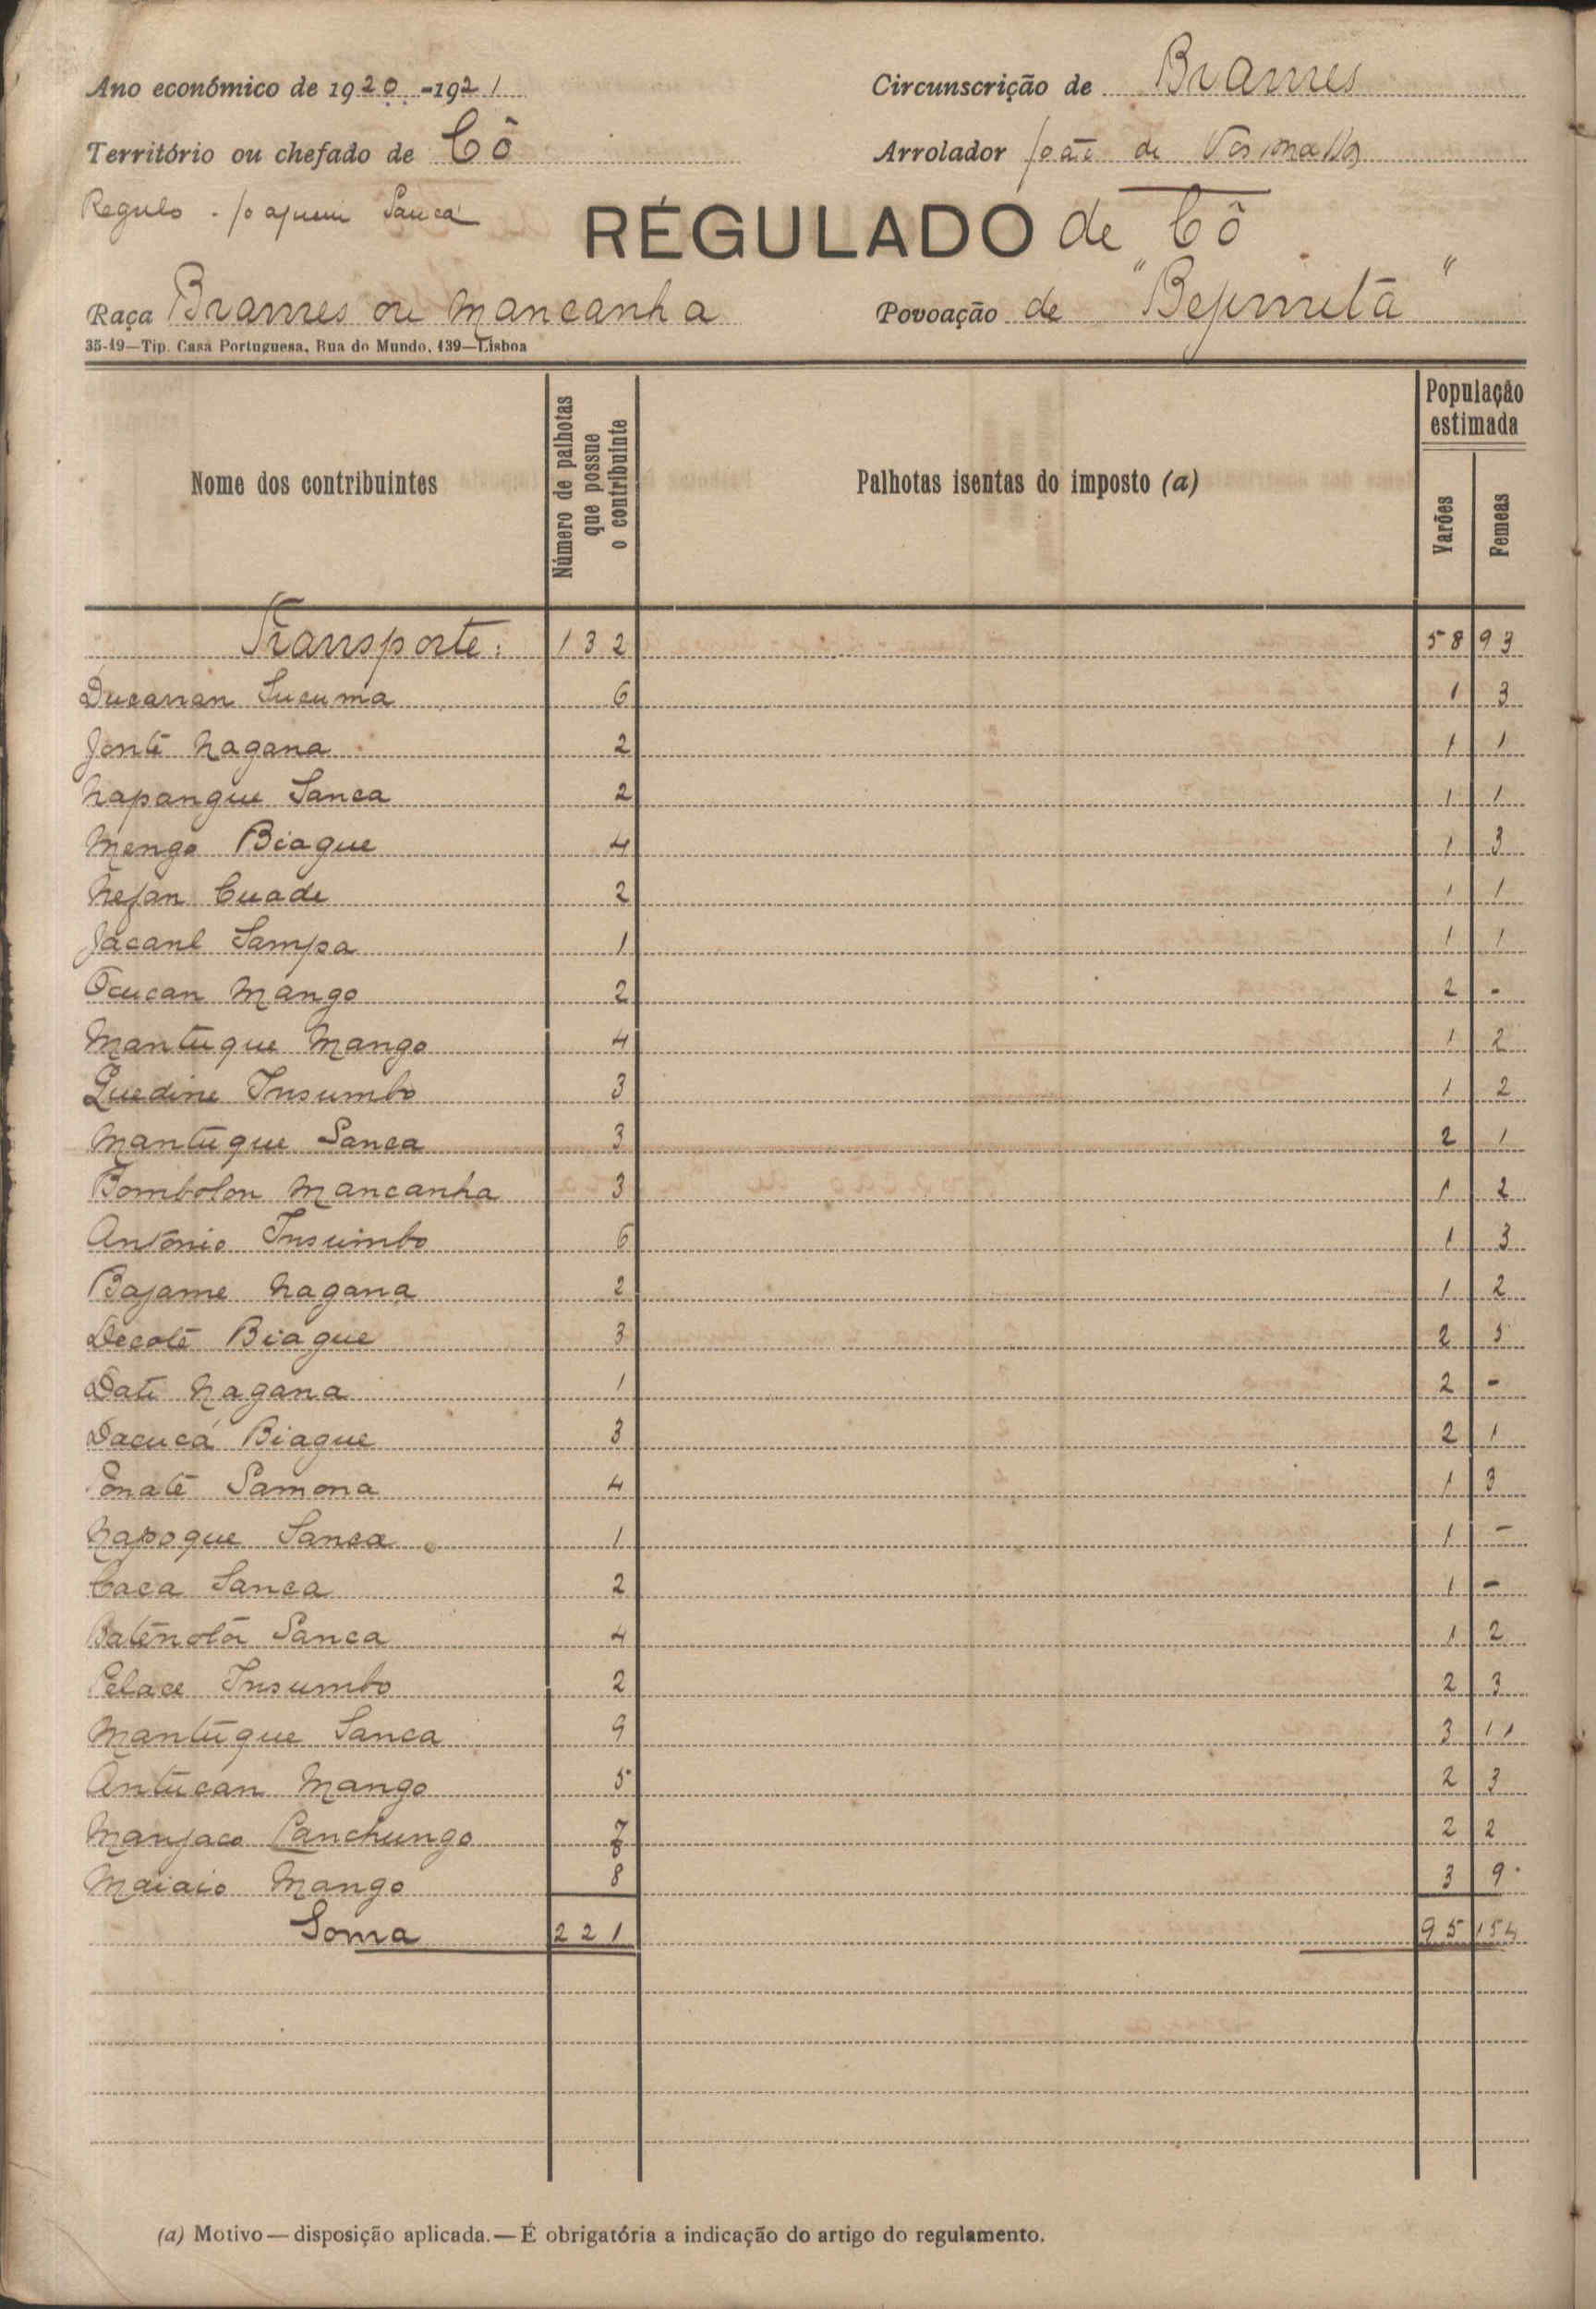 Ano económico de 1920-1921
Circunscrição de Brames
Território ou chefado de Cô
Arrolador João de
Regulo - Joaquim Sanca
RÉGULADO de Cô
Raça Brames ou Mancanha
Povoação de "Bejimita"
35-19—Tip. Casa Portuguesa, Rua do Mundo, 139—Lisboa
Nome dos contribuintes
Número de palhotas que possue o contribuinte
Palhotas isentas do imposto (a)
População estimada
Varões
Femeas
Transporte: 132 58 93
Ducanan Sucuma 6 1 3
Jontê Nagana 2 1 1
Napangue Sanca 2 1 1
Mengo Biague 4 1 3
Nejan Cuade 2 1 1
Jacanl Sampa 1 1 1
Ocucan Mango 2 2 -
Mantúque Mango 4 1 2
Quedine Insumbo 3 1 2
Mantúque Sanca 3 2 1
Bombolon Mancanha 3 1 2
António Insumbo 6 1 3
Bajame Nagana 2 1 2
Decolê Biague 3 2 5
Dati Nagana 1 2 -
Dacucá Biague 3 2 1
Onatê Samona 4 1 3
Napoque Sanca 1 1 -
Caca Sanca 2 1 -
Batênolô Sanca 4 1 2
Pelace Insumbo 2 2 3
Mantúque Sanca 9 3 11
Antucan Mango 5 2 3
Manjaco Canchungo 7 2 2
Maiaio Mango 8 3 9
Soma 221 95 154
(a) Motivo—disposição aplicada.—É obrigatória a indicação do artigo do regulamento.